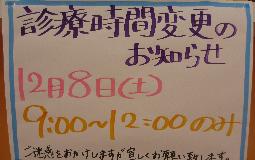 診療時間変更の
お知らせ
12月8日(土)
9:00～12:00のみ
ご迷惑をおかけしますが宜しくお願い致します。